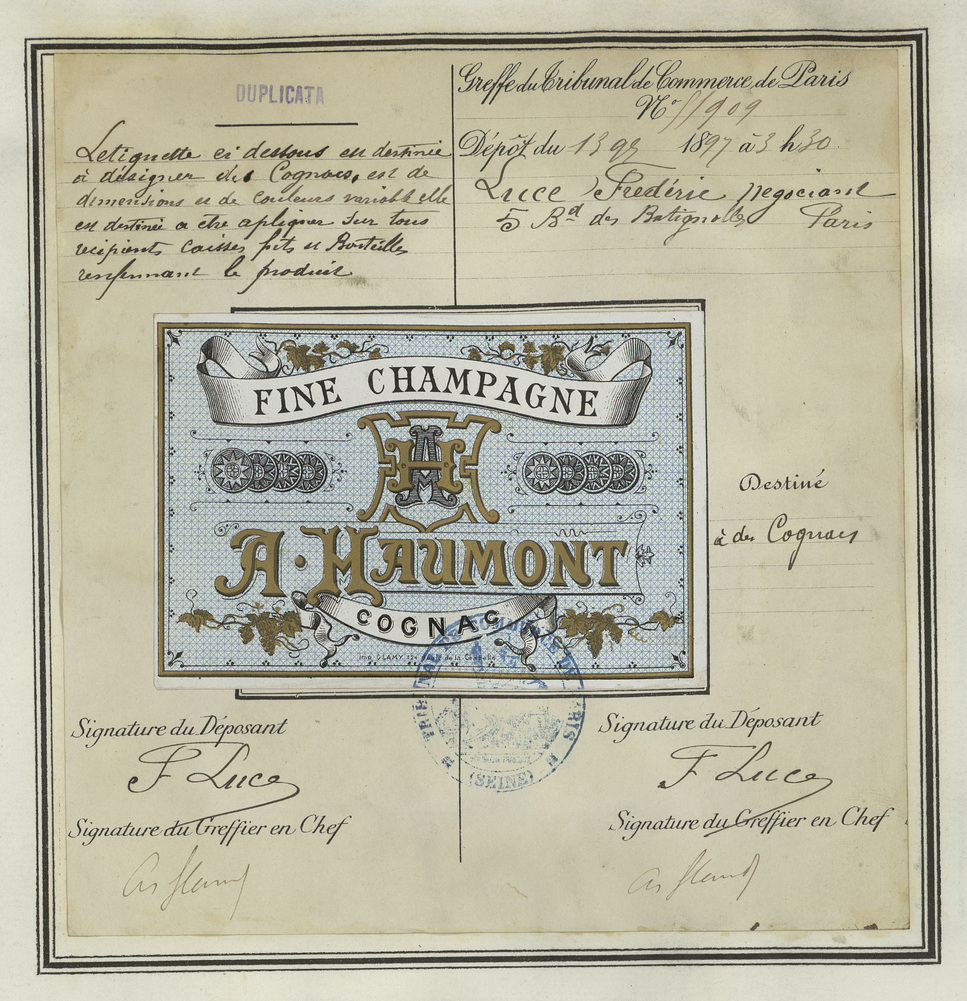 DUPLICATA
Letiquette ci dessous est destinée
à désigner des Cognacs, est de
dimensions et de Couleurs variable elle
est destinée a etre apliquer sur tous
recipients caisses futs et Bouteilles
renfermant le produit
Greffe du Tribunal de Commerce de Paris
N°
Dépôt du 13 1897 à 3 h 30
Luce Frédéric negociant
5 Bd des Batignolles Paris
FINE CHAMPAGNE
AH
A·HAUMONT
COGNAC
Imp. CLAMY de la Chapelle
Destiné
à des Cognacs
TRIBUNAL DE COMMERCE DE PARIS
(SEINE)
Signature du Déposant
F Luce
Signature du Greffier en Chef
Signature du Déposant
F Luce
Signature du Greffier en Chef